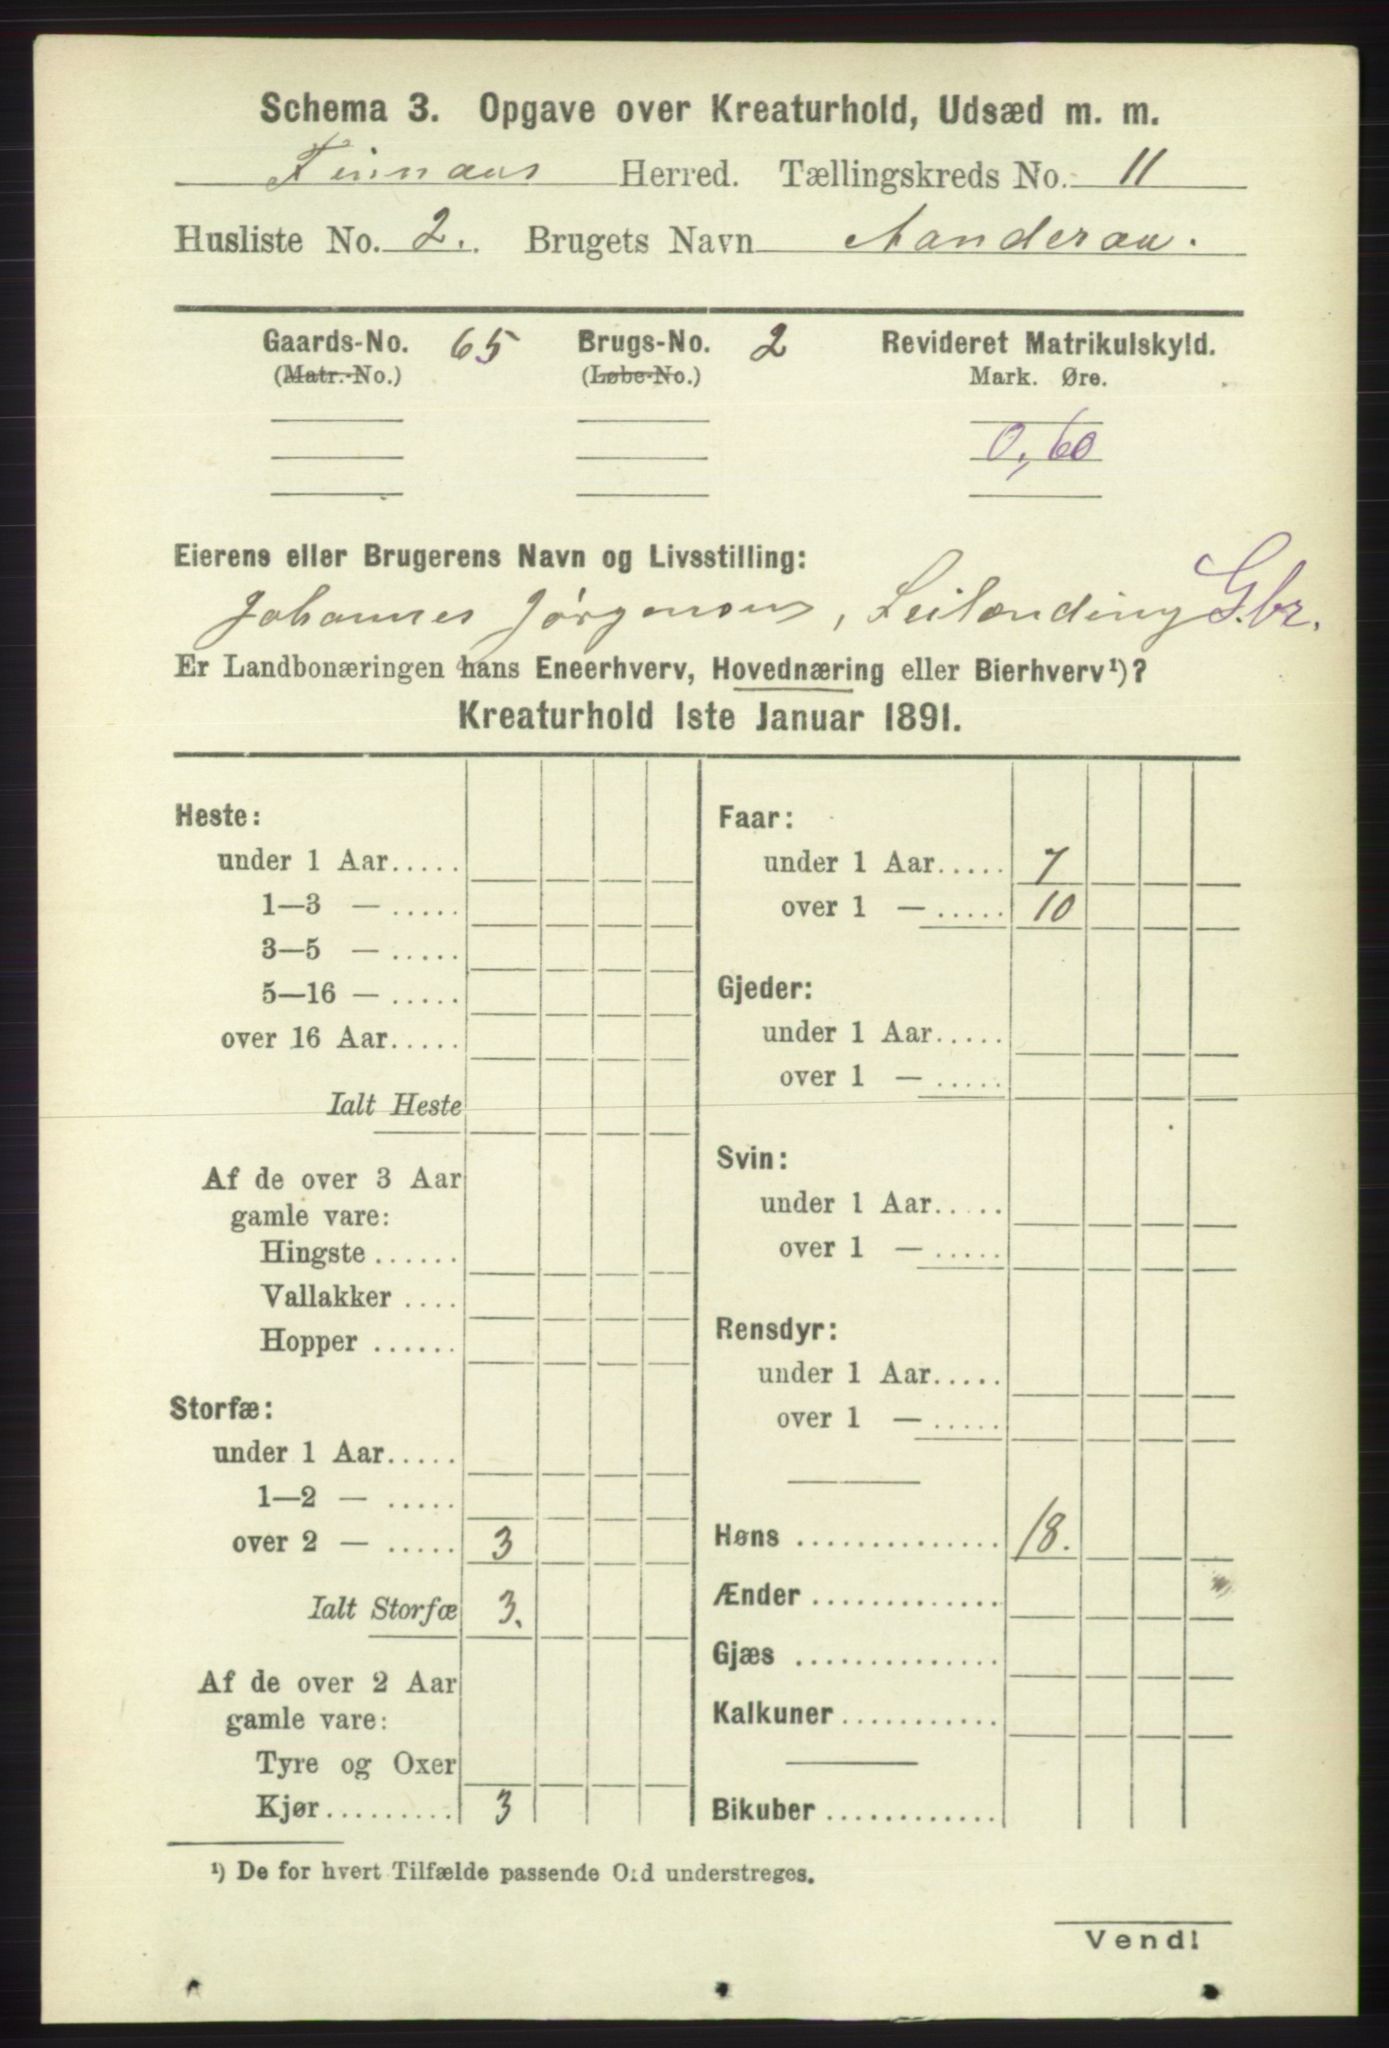 Schema 3. Opgave over Kreaturhold, Udsæd m. m.
Finnaas Herred. Tællingskreds No. 11
Husliste No. 2. Brugets Navn Aanderaa.
Gaards-No. 65 Brugs-No. 2 Revideret Matrikulskyld.
(Matr.-No.) (Løbe-No.) Mark. Øre.
0,60
Eierens eller Brugerens Navn og Livsstilling:
Johannes Jørgensen, Leilænding Gbr.
Er Landbonæringen hans Eneerhverv, Hovednæring eller Bierhverv¹)?
Kreaturhold 1ste Januar 1891.
Heste:
under 1 Aar.....
1—3 — .....
3—5 — .....
5—16 — .....
over 16 Aar.....
Ialt Heste
Af de over 3 Aar
gamle vare:
Hingste ......
Vallakker ....
Hopper ......
Storfæ:
under 1 Aar.....
1—2 — .....
over 2 — ..... 3
Ialt Storfæ 3.
Af de over 2 Aar
gamle vare:
Tyre og Oxer
Kjør......... 3
Faar:
under 1 Aar..... 7
over 1 — ..... 10
Gjeder:
under 1 Aar.....
over 1 — .....
Svin:
under 1 Aar.....
over 1 — .....
Rensdyr:
under 1 Aar.....
over 1 — .....
Høns .............. 18.
Ænder .............
Gjæs ..............
Kalkuner ...........
Bikuber ............
¹) De for hvert Tilfælde passende Ord understreges.
Vend!